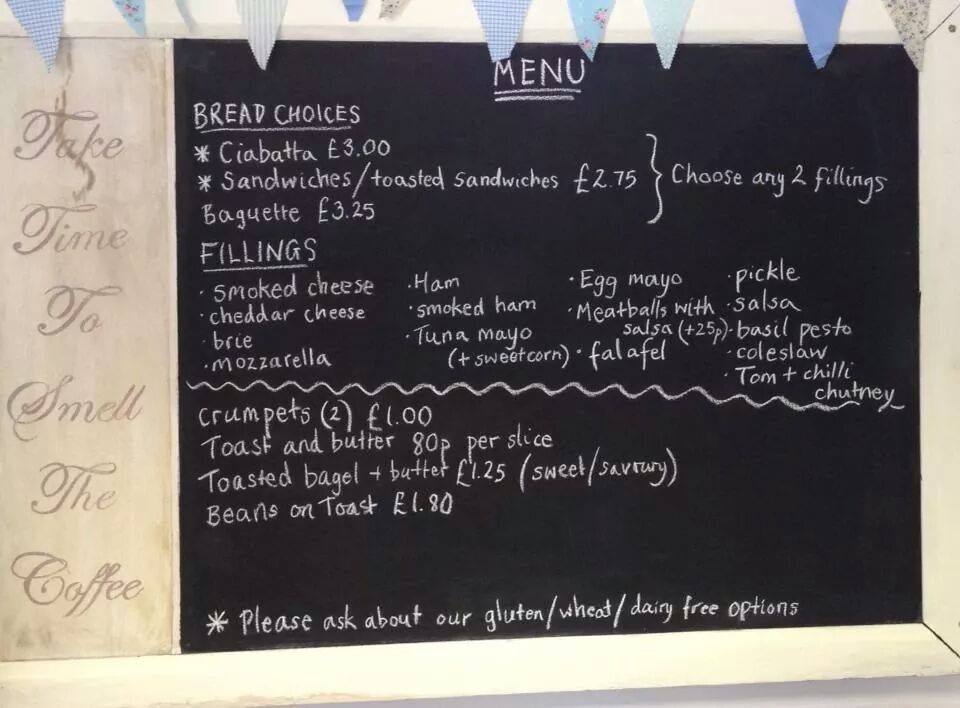 Take
Time
To
Smell
The
Coffee
MENU
BREAD CHOICES
* Ciabatta £3.00
* Sandwiches/toasted sandwiches £2.75
Baguette £3.25
} Choose any 2 fillings
FILLINGS
· smoked cheese
· cheddar cheese
· brie
· mozzarella
· Ham
· smoked ham
· Tuna mayo
(+ sweetcorn)
· Egg mayo
· Meatballs with
salsa (+25p)
· falafel
· pickle
· salsa
· basil pesto
· coleslaw
· Tom + chilli
chutney
crumpets (2) £1.00
Toast and butter 80p per slice
Toasted bagel + butter £1.25 (sweet/savoury)
Beans on Toast £1.80
* Please ask about our gluten/wheat/dairy free options